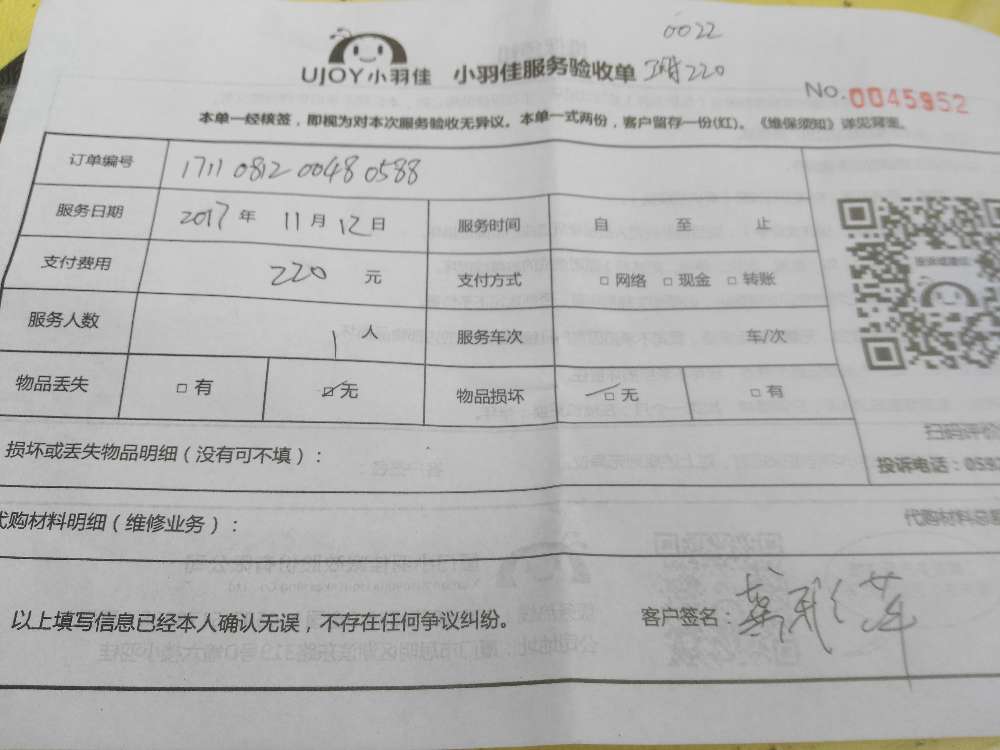 0022
UJOY小羽佳 小羽佳服务验收单 220
No. 0045952
本单一经核签，即视为对本次服务验收无异议。本单一式两份，客户留存一份(红)。《维保须知》详见背面。
订单编号 1711 0812 0048 0588
服务日期 2017年 11月 12日 服务时间 自 至 止
支付费用 220 元 支付方式 □ 网络 □ 现金 □ 转账
服务人数 1 人 服务车次 车/次
物品丢失 □ 有 ☑ 无 物品损坏 ☑ 无 □ 有
扫码评价
损坏或丢失物品明细（没有可不填）：
投诉电话：0592
代购材料明细（维修业务）： 代购材料总
以上填写信息已经本人确认无误，不存在任何争议纠纷。 客户签名：